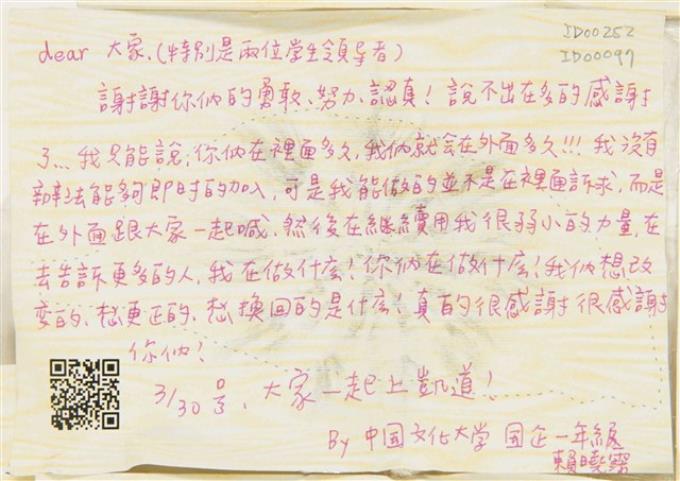 ID00252
ID00097
dear 大家，(特別是兩位學生領导者)
謝謝你們的勇敢、努力、認真！說不出在多的感謝
了... 我只能說：你們在裡面多久，我們就会在外面多久!!! 我沒有
辦法能夠即时的加入，可是我能做的並不是在裡面訴求，而是
在外面跟大家一起喊，然後在継續用我很弱小的力量，在
去告訴更多的人，我在做什么！你們在做什么！我們想改
变的、想更正的、想換回的是什么！真的很感謝很感謝
你們！
3/30号，大家一起上凱道！
By 中国文化大学 国企一年級
賴曉